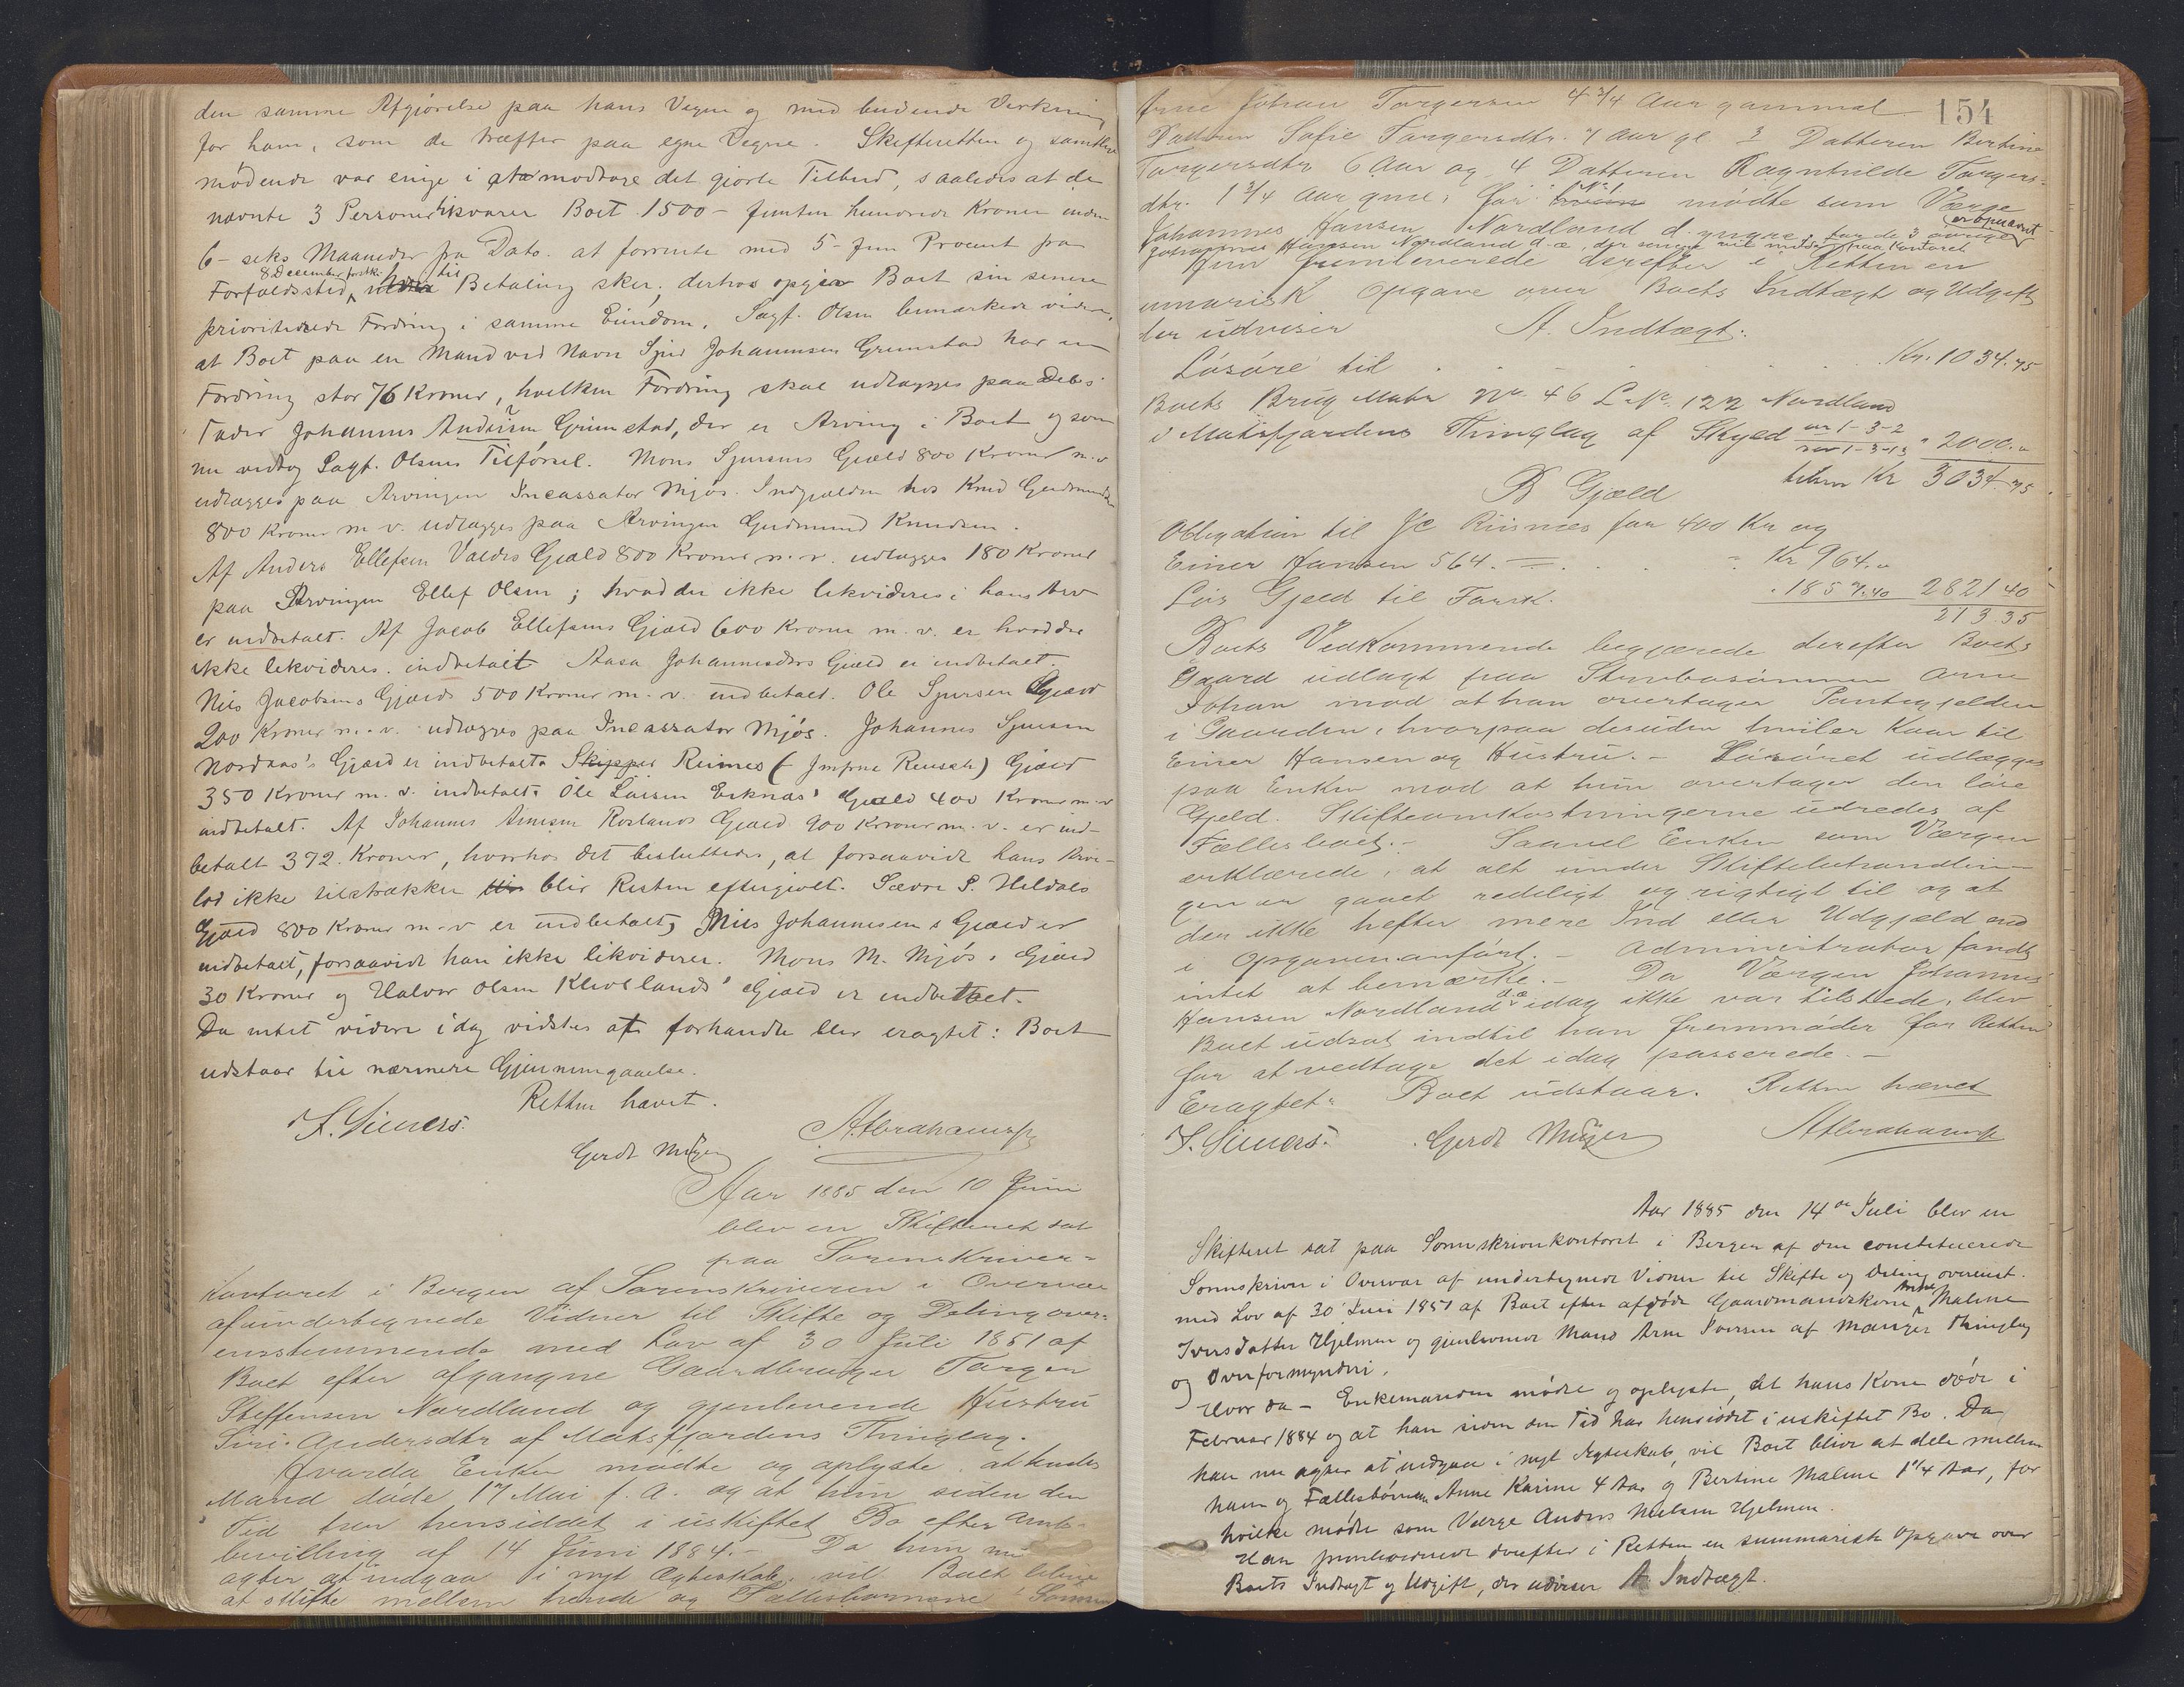 den samme Afgjørelse paa hans Vegne og med bindende Virkning
for ham, som de træffer paa egne Vegne. Skifteretten og samtlige
mødende var enige i at modtage det gjorte Tilbud, saaledes at de
nævnte 3 Personer tilsvarer Boet 1500 - femten hundrede Kroner inden
6 - seks Maaneder fra Dato. at forrente med 5 - fem Procent fra
8 December førstk. til
Forfaldstid, Betaling sker; derhos opgiver Boet sin senere
prioriterede Fordring i samme Eiendom. Sagf. Olsen bemærkede videre,
at Boet paa en Mand ved Navn Sjur Johannesen Grimstad har en
Fordring stor 76 Kroner, hvilken Fordring skal udlægges paa Debs
Fader Johannes Andersen Grimstad, der er Arving i Boet og som
nu vedtog Sagf. Olsens Tilførsel. Mons Sjursens Gjæld 800 Kroner m.v
udlægges paa Arvingen Incassator Mjøs. Indgjælden hos Knud Gudmundsen
800 Kroner m v. udlægges paa Arvingen Gudmund Knudsen.
Af Anders Ellefsen Valdes Gjæld 800 Kroner m. v. udlægges 180 Kroner
paa Arvingen Ellef Olsen; hvad der ikke likvideres i hans Arv
er indbetalt. Af Jacob Ellefsens Gjæld 600 Kroner m. v. er hvad der
ikke likvideres. indbetalt Aasa Johannesdtrs Gjæld er indbetalt.
Nils Jacobsens Gjælds 500 Kroner m. v. indbetalt. Ole Sjursen Gjæld
200 Kroner m. v. udlægges paa Incassator Mjøs. Johannes Sjursen
Nordaas's Gjæld er indbetalt. Skipper Reimes (- Jmfrue Reusch) Gjæld
350 Kroner m. v. indbetalt. Ole Larsen Eiknæs' Gjæld 400 Kroner m v
indbetalt. Af Johannes Arnesen Roslands Gjæld 900 Kroner m. v. er ind-
betalt 372. Kroner, hvorhos det besluttedes, at forsaavidt hans Arve-
lod ikke tilstrækker blir Resten eftergivet. Sævre P. Heldals
Gjæld 800 Kroner m. v er indbetalt, Nils Johannesens Gjæld er
indbetalt, forsaavidt han ikke likviderer. Mons M. Mjøs's Gjæld
30 Kroner og Halvor Olsen Klevelands' Gjæld er indbetalt.
Da intet videre idag vidstes at forhandle blev eragtet: Boet
udstaar til nærmere Gjennemgaaelse.
Retten hævet.
F. Siewers.
Gerdt Meyer
Abrahamsen
Aar 1885 den 10 Juni
blev en Skifteret sat
paa Sorenskriver-
kontoret i Bergen af Sorenskriveren i Overvær
af undertegnede Vidner til Skifte og Deling over-
ensstemmende med Lov af 30 Juli 1851 af
Boet efter afgangne Gaardbruger Torger
Steffensen Nordland og gjenlevende Hustru
Siri Andersdtr af Matsfjordens Thinglag.
Hvorda Enken mødte og oplyste, at hendes
Mand døde 17 Mai f. A. og at hun siden den
Tid har hensiddet i uskiftet Bo efter Amts-
bevilling af 14 Juni 1884. - Da hun nu
agter at indgaa i nyt Ægteskab, vil Boet blive
at skifte mellem hende og Fællesbørnene: Sønnen
154
Arne Johan Torgersen 4 3/4 Aar gammal
Datteren Sofie Torgersdtr. 7 Aar gl. 3 Datteren Bertine
Torgersdtr 6 Aar og 4 Datteren Ragnhilde Torgers-
dtr. 1 3/4 Aar gml, for No 1 mødte som Værge
Johannes Hansen Nordland d. yngre, for de 3 øvrige er opnævnt
Johannes Hansen Nordland d. æ, der senere vil møde paa Kontoret
Hun fremleverede derefter i Retten en
summarisk Opgave over Boets Indtægt og Udgift
der udviser A. Indtægt:
Løsøre til . . . . . Kr. 1034.75
Boets Brug Matr No. 46 L.No. 122 Nordland
i Matsfjordens Thinglag af Skyld ur 1-3-2
rev 1-3-13 " 2000."
tilsm Kr 3034.75
B Gjæld
Obligation til Jc Riisnæs for 400 Kr og
Einer Hansen 564. . . . Kr 964."
Løs Gjeld til Forsk. . 1857.40 2821 40
213.35
Boets Vedkommende begjærede derefter Boets
Gaard udlagt paa Stervbosønnen Arne
Johan mod at han overtager Pantegjelden
i Gaarden, hvorpaa desuden hviler Kaar til
Einer Hansen og Hustru. - Løsøret udlægges
paa Enken mod at hun overtager den løse
Gjeld. Skifteomkostningerne udredes af
Fællesboet. - Saavel Enken som Værgen
erklærede, at alt under Skiftebehandlin-
gen er gaaet redeligt og rigtigt til og at
der ikke hefter mere Ind eller Udgjæld end
i Opgaven anført. - Administrator fandt
intet at bemærke. - Da Værgen Johannes
Hansen Nordland d æ idag ikke var tilstede, blev
Boet udsat indtil han fremmøder for Retten
for at vedtage det idag passerede. -
Eragtet: Boet udstaar. Retten hævet
F. Siewers. Gerdt Meyer Abrahamsen
Aar 1885 den 14de Juli blev en
Skifteret sat paa Sorenskriverkontoret i Bergen af den constituerede
Sorenskriver i Overvær af undertegnede Vidner til Skifte og Deling overenst.
med Lov af 30 Juli 1851 af Boet efter afdøde Gaardmandskone Malene
Iversdatter Hjelmen og gjenlevende Mand Arne Iversen af Manger Thinglag
og Overformynderi.
Hvor da - Enkemanden mødte og oplyste, at hans Kone døde i
Februar 1884 og at han siden den Tid har hensiddet i uskiftet Bo. Da
han nu agter at indgaa i nyt Ægteskab, vil Boet blive at dele mellem
ham og Fællesbørnene Anne Karine 4 Aar og Bertine Malene 1 1/4 Aar, for
hvilke mødte som Værge Anders Nielsen Hjelmen.
Han fremleverede derefter i Retten en summarisk Opgave over
Boets Indtægt og Udgift, der udviser A Indtægt.